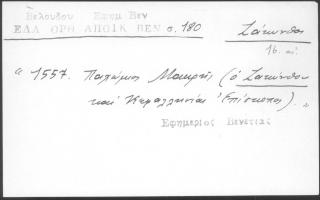 Βελούδου Εφημ Βεν
ΕΛΛ ΟΡΘ ΑΠΟΙΚ ΒΕΝ σ. 180
Ζάκυνθος
16. αι.
" 1557. Παχώμιος Μακρῆς (ὁ Ζακύνθου
καὶ Κεφαλληνίας Ἐπίσκοπος). "
Εφημεριος Βενετιας